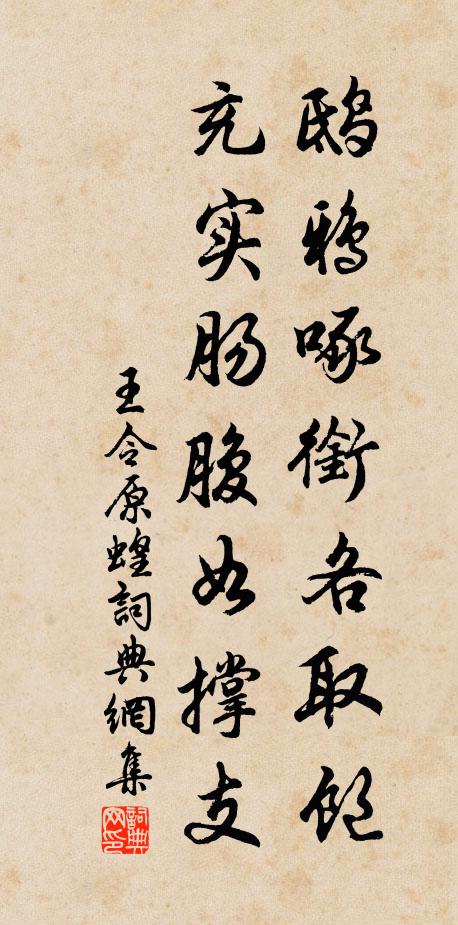 鴟鴉啄銜各取飽
充实肠腹如撑支
王令原蝗詞典網集
詞典网印